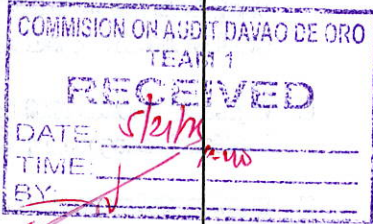 COMMISION ON AUDIT DAVAO DE ORO
TEAM 1
RECEIVED
DATE:
TIME:
BY: